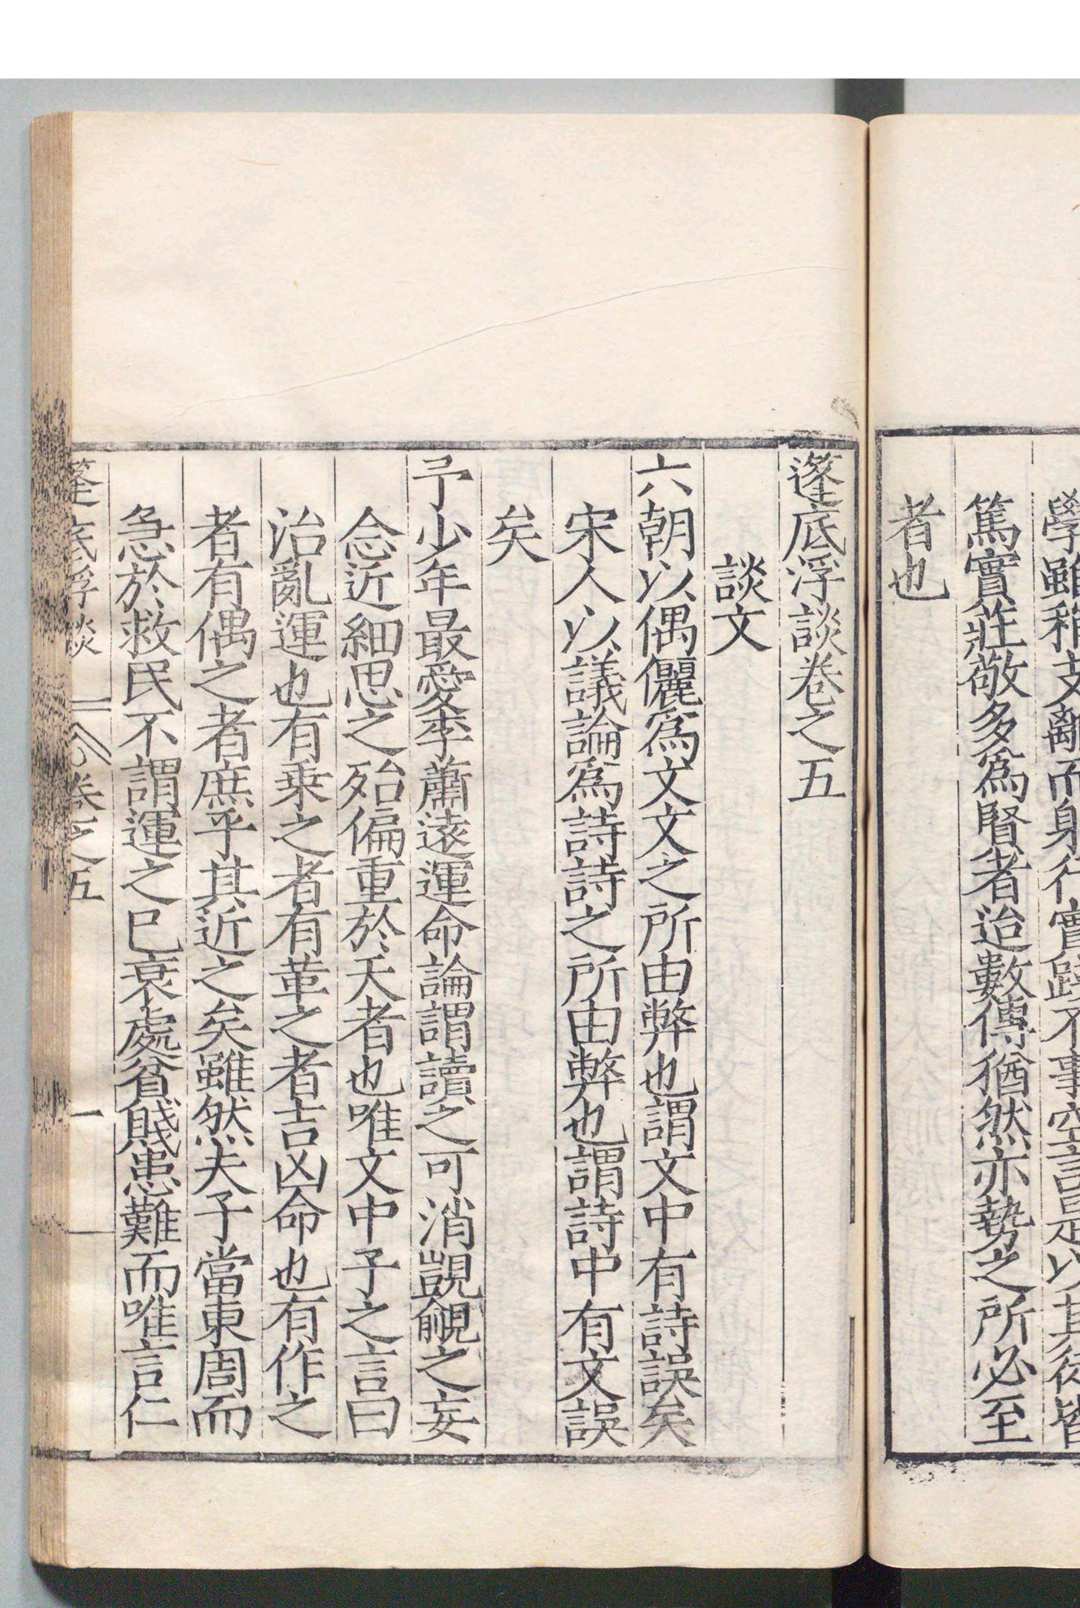 學雖稍支離而躬行實踐不事空言是以其徒皆
篤實莊敬多為賢者迨數傳猶然亦勢之所必至
者也
蓬底浮談卷之五
談文
六朝以偶儷為文文之所由弊也謂文中有詩誤矣
宋人以議論為詩詩之所由弊也謂詩中有文誤
矣
予少年最愛李蕭遠運命論謂讀之可消覬覦之妄
念近細思之殆偏重於天者也唯文中子之言曰
治亂運也有乗之者有革之者吉凶命也有作之
者有偶之者庶乎其近之矣雖然夫子當東周而
急於救民不謂運之已衰處貧賤患難而唯言仁
蓬底浮談 卷之五 一